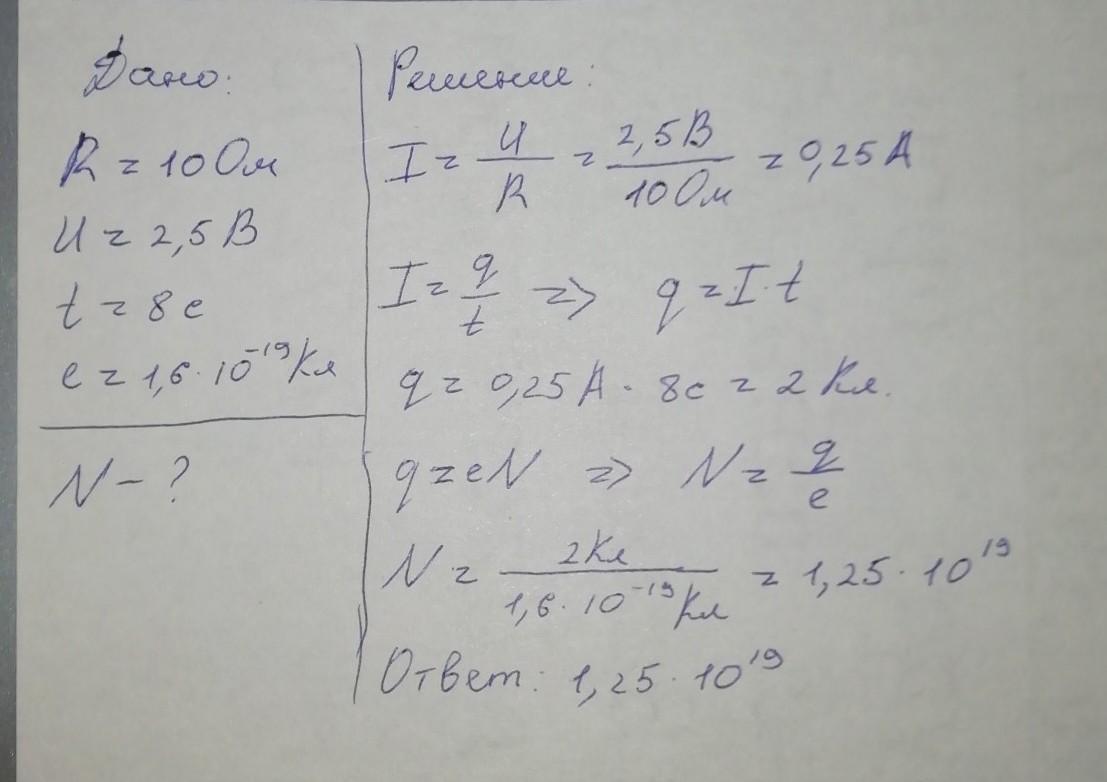 Дано:
R = 10 Ом
U = 2,5 В
t = 8 с
e = 1,6 · 10⁻¹⁹ Кл
N - ?
Решение:
I = U/R = 2,5 В/10 Ом = 0,25 А
I = q/t => q = I · t
q = 0,25 А · 8с = 2 Кл.
q = eN => N = q/e
N = 2 Кл/1,6 · 10⁻¹⁹ Кл = 1,25 · 10¹⁹
Ответ: 1,25 · 10¹⁹